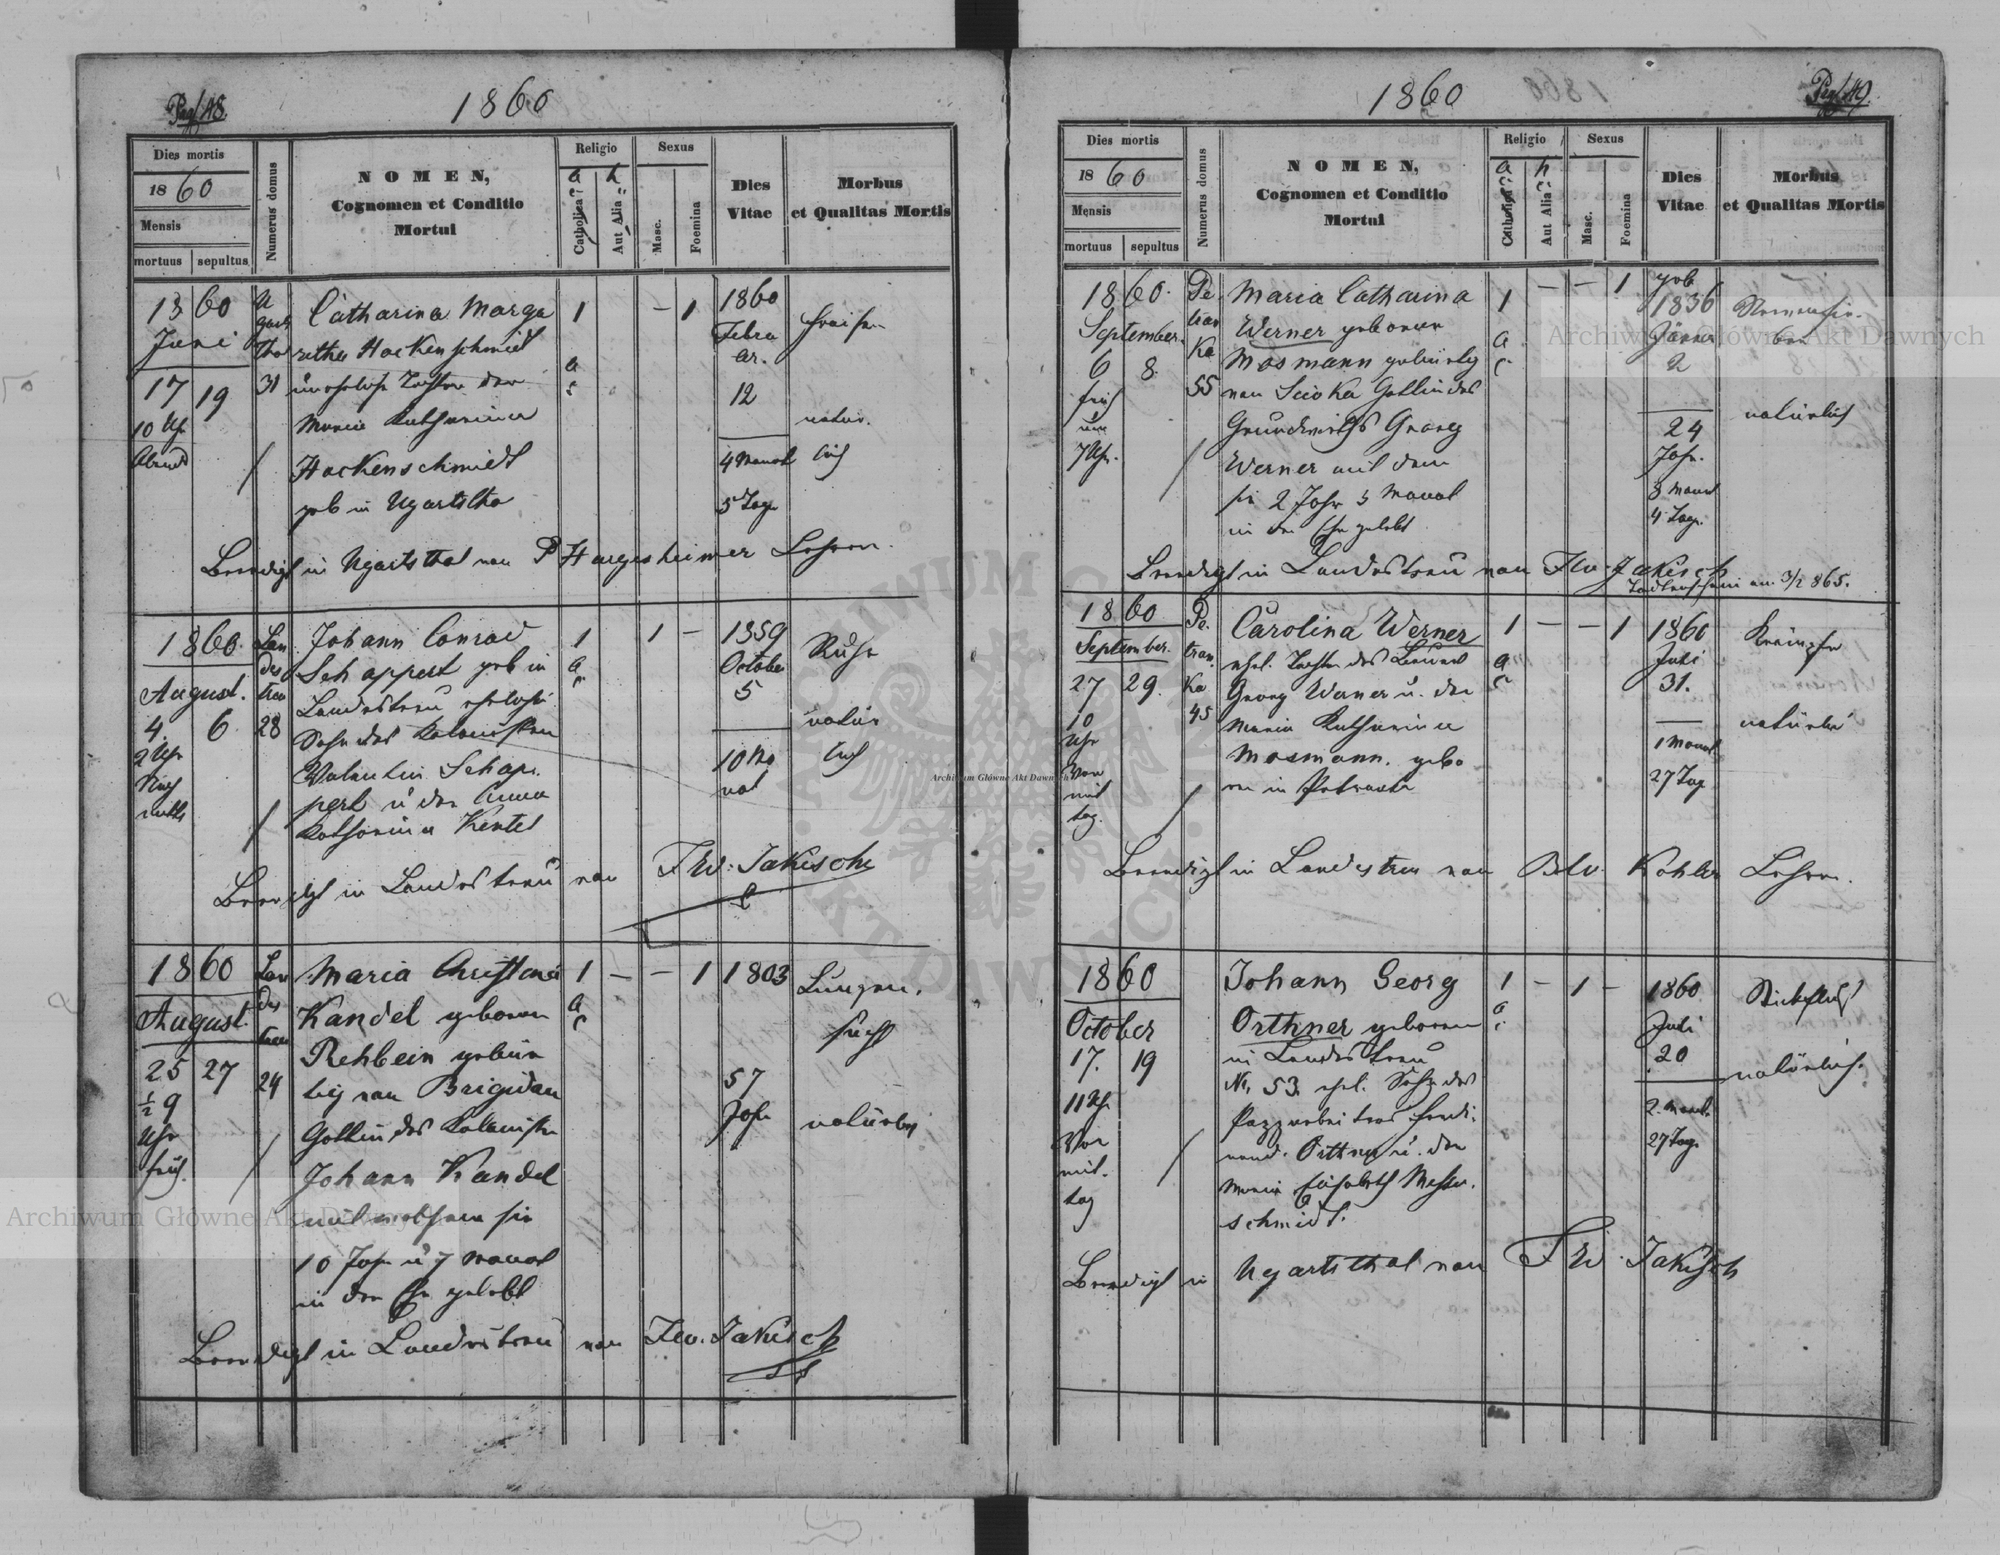 Pag. 48.
1860
Dies mortis
1860
Mensis
mortuus sepultus
Numerus domus
NOMEN,
Cognomen et Conditio
Mortui
Religio
a h
Catholica
Aut Alia
Sexus
Masc.
Foemina
Dies
Vitae
Morbus
et Qualitas Mortis
1860
Juni
17 19
10 Uhr
Abends
U
garts
thal
31
Catharina Marga
retha Hackenschmidt
uneheliche Tochter der
Maria Katharina
Hackenschmidt
geb in Ugartsthal
1
a
c
— 1
1860
Februar
12
4 Monat
5 Tage
Fraisen
natür
lich
Beerdigt in Ugartsthal von P Hargesheimer Lehrer.
1860
August.
4. 6
2 Uhr
Nach
mittag
Lan
des
treu
28
Johann Conrad
Schappert geb in
Landestreu eheliche
Sohn des Kolonisten
Valentin Schap
pert u der Anna
Katharina Kentel
1
a
c
1 —
1859
October
5
10 Mo
nat
Ruhr
natür
lich
Beerdigt in Landestreu von Frd. Jakisch
1860
August.
25 27
½ 9
Uhr
früh.
Lan
des
treu
24
Maria Christina
Kandel geborene
Rehbein gebür
tig von Brigidau
Gattin des Kolonisten
Johann Kandel
mit welchem sie
10 Jahr u 7 Monat
in der Ehe gelebt
1 — — 1
a
c
1803
57
Jahr
Lungen
sucht
natürlich
Beerdigt in Landestreu von Jakisch
Pag. 49.
1860
Dies mortis
1860
Mensis
mortuus sepultus
Numerus domus
NOMEN,
Cognomen et Conditio
Mortui
Religio
a h
Catholica
Aut Alia
Sexus
Masc.
Foemina
Dies
Vitae
Morbus
et Qualitas Mortis
1860.
September.
6 8.
früh
um
7 Uhr.
Pe
tran
ka
55
Maria Catharina
Werner geborene
Mosmann gebürtig
von Sciwka Gattin des
Grundwirths Georg
Werner mit dem
sie 2 Jahr 5 Monat
in der Ehe gelebt
1 — — 1
a
c
geb
1836
Jänner
2
24
Jahr.
8 Monat
4 Tage.
natürlich
Beerdigt in Landestreu von Jakisch
Todtenschein am 3/2 865.
1860
September.
27 29.
10
Uhr
Vor
mit
tag.
Pe.
tran
ka
45
Carolina Werner
ehel. Tochter des
Georg Werner u. der
Maria Katharina
Mosmann. gebo
ren in Petranka
1 — — 1
a
c
1860
Juli
31.
1 Monat
27 Tag
Krämpfe
natürlich
Beerdigt in Landestreu von Kohler Lehrer.
1860
October
17. 19
11 Uhr
Vor
mit.
tag
Johann Georg
Orthner geboren
in Landestreu
No. 53. ehel. Sohn des
Ferdi
nand. Orthner u. der
Maria Elisabeth Messer.
schmidt.
1 — 1 —
a
c
1860
Juli
20
2. Monat.
27 Tage
Stickfluß
natürlich.
Beerdigt in Ugartsthal von Frd Jakisch
Archiwum Główne Akt Dawnych
Archiwum Główne Akt Dawnych
Archiwum Główne Akt Dawnych